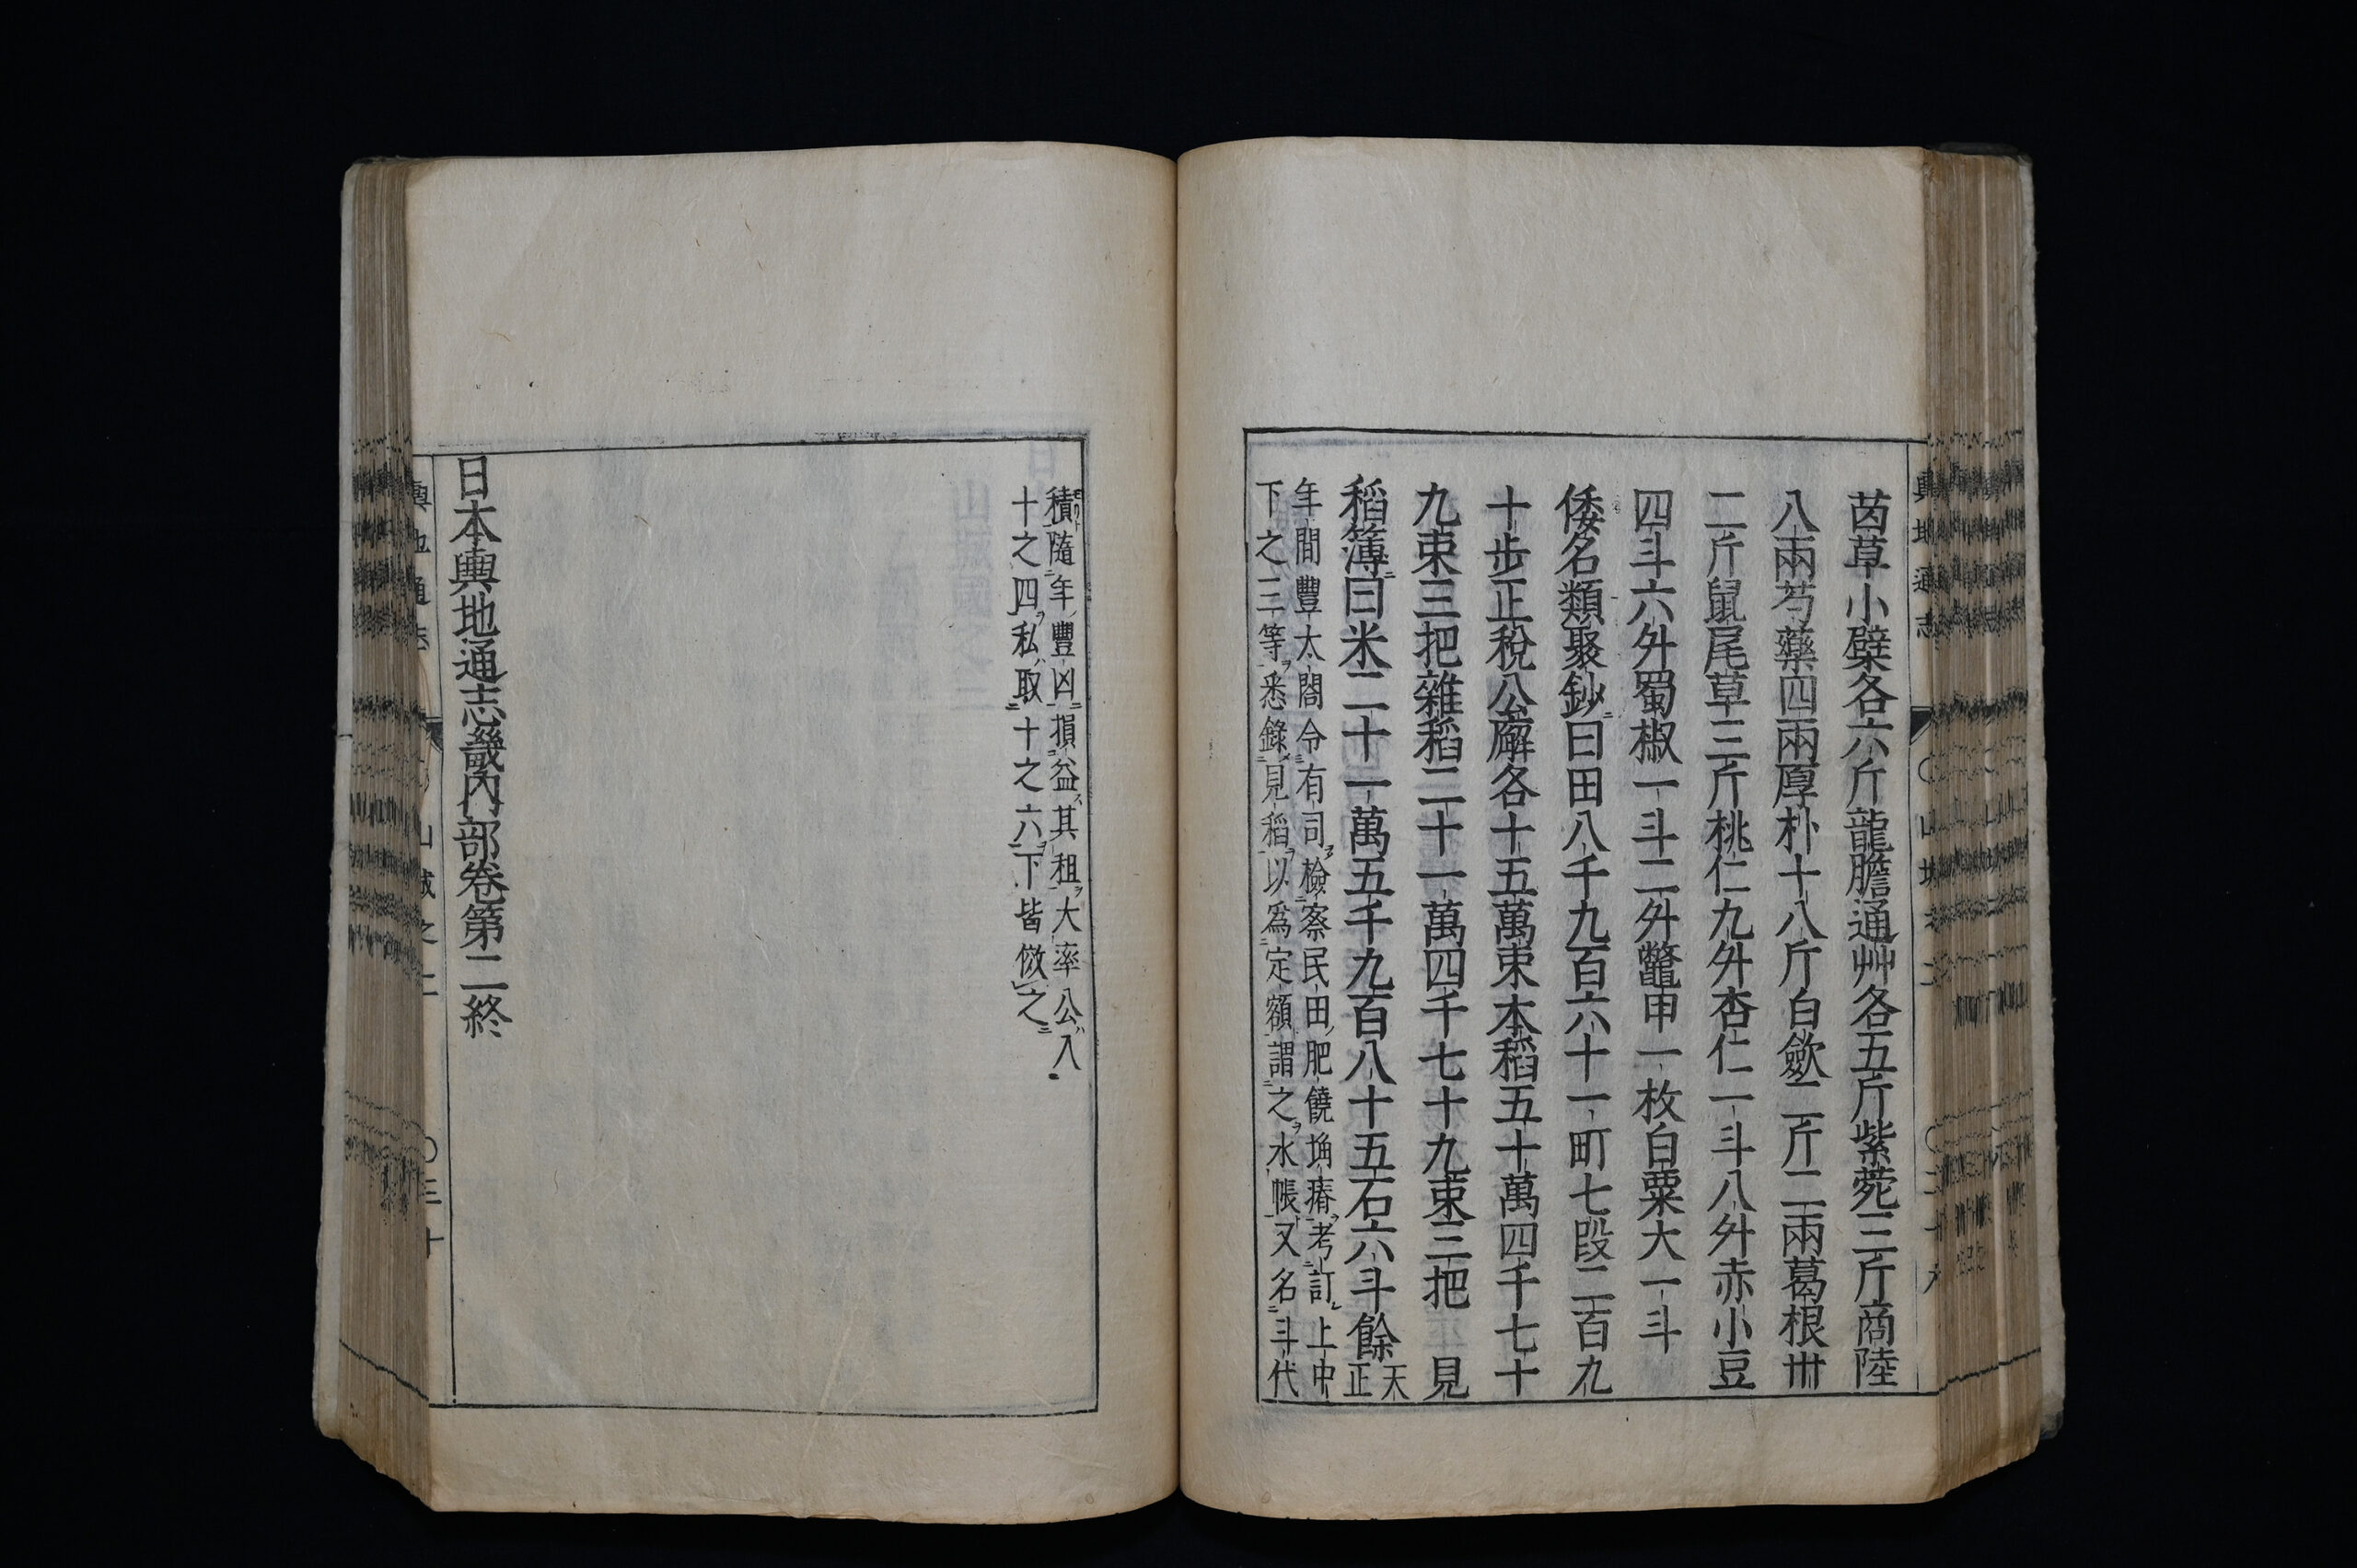 茵草小檗各六斤龍膽通艸各五斤紫菀三斤商陸
八兩芍藥四兩厚朴十八斤白歛二斤二兩葛根卅
二斤鼠尾草三斤桃仁九升杏仁一斗八升赤小豆
四斗六升蜀椒一斗二升鼈甲一枚白粟大一斗
倭名類聚鈔曰田八千九百六十一町七段二百九
十步正稅公廨各十五萬束本稻五十萬四千七十
九束三把雜稻二十一萬四千七十九束三把 見
稻簿曰米二十一萬五千九百八十五石六斗餘天
正
年間豐太閤令有司檢察民田肥饒埆瘠考訂上中
下之三等悉錄見稻以爲定額謂之水帳又名斗代
積隨年豐凶損益其租大率公入
十之四私取十之六下皆倣之
日本輿地通志畿內部卷第二終